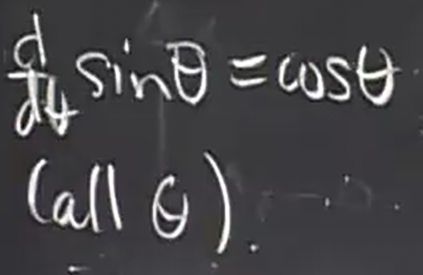 d/dθ sinθ = cosθ
(all θ).